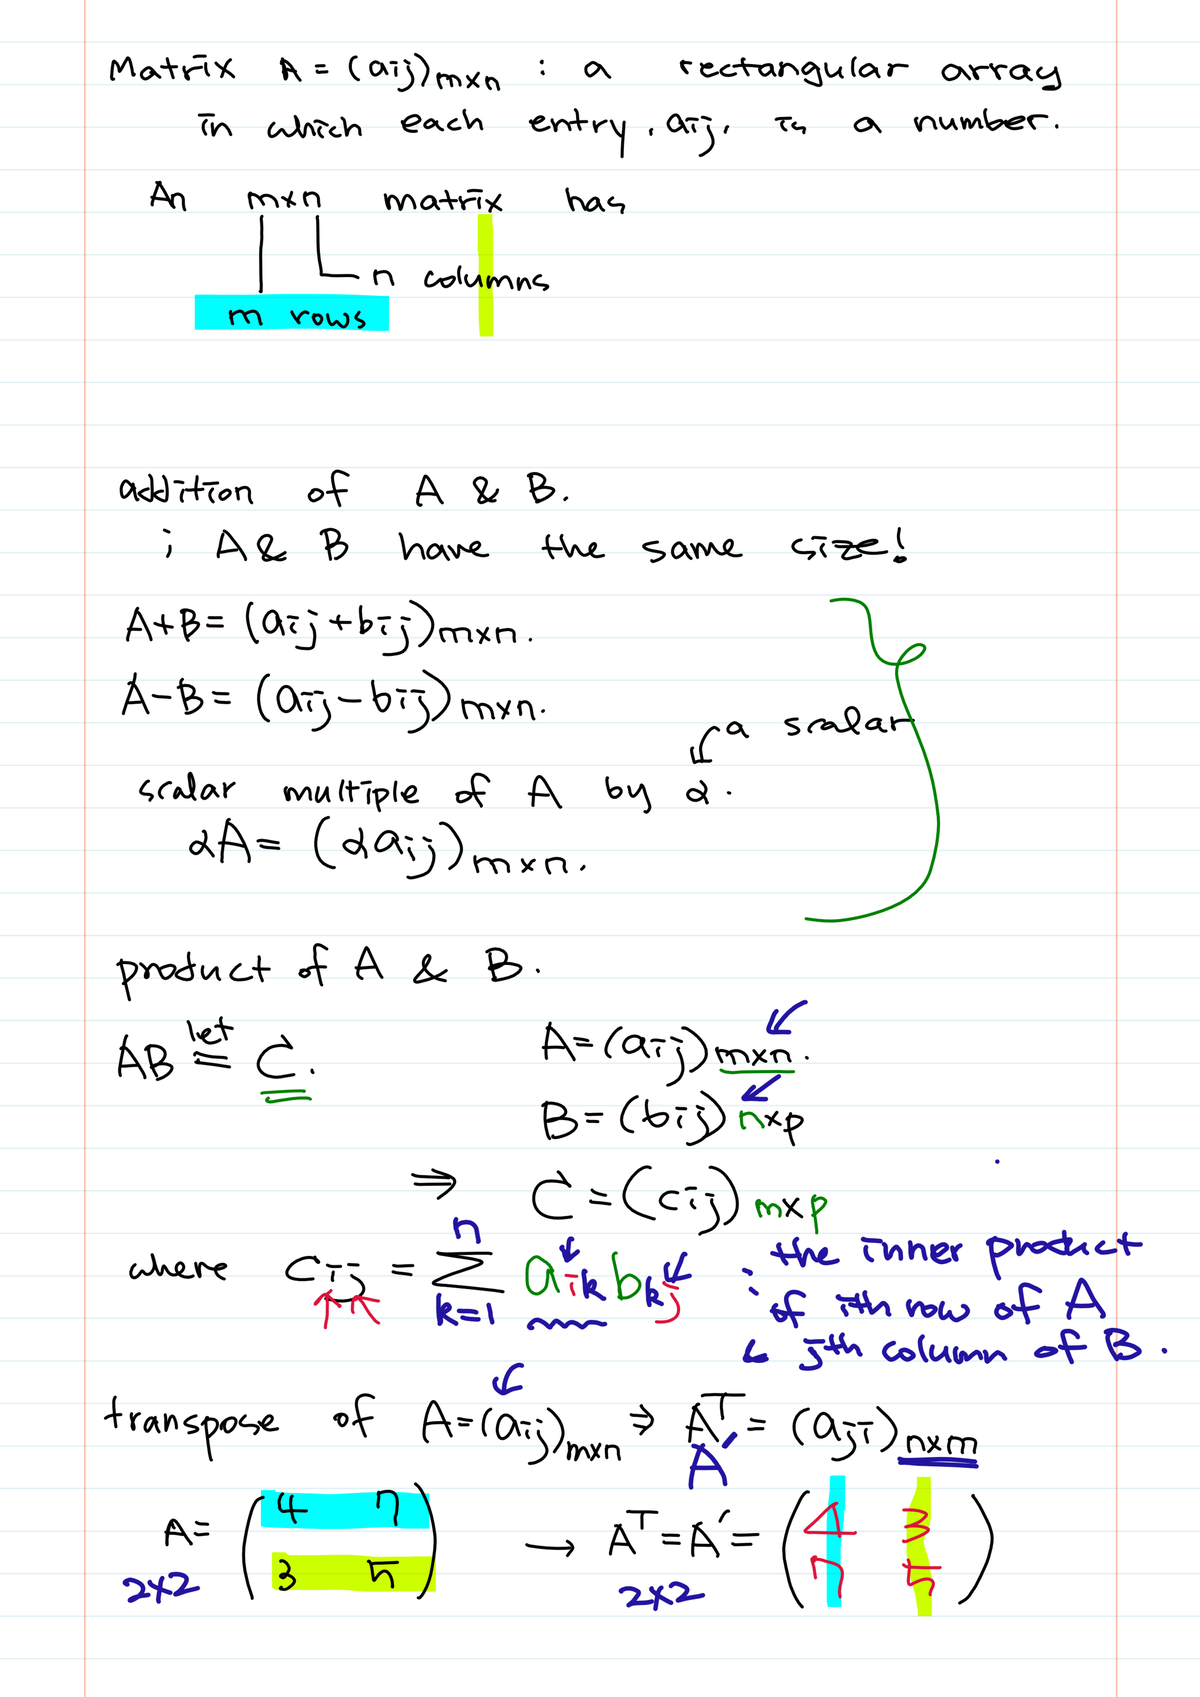 Matrix A = (aij)m×n : a rectangular array
in which each entry, aij, is a number.
An m×n matrix has
n columns
m rows
addition of A & B.
; A & B have the same size!
A+B = (aij+bij)m×n.
A-B = (aij-bij)m×n.
a scalar
scalar multiple of A by α.
αA = (αaij)m×n.
product of A & B.
AB let = C. A = (aij)m×n.
B = (bij)n×p
⇒ C = (cij)m×p
where cij = Σ n k=1 aik bkj : the inner product
of ith row of A
& jth column of B.
transpose of A = (aij)m×n ⇒ AT = (aji)n×m
A'
A = (4 7 → AT = A' = (4 3
2×2 3 5) 2×2 7 5)